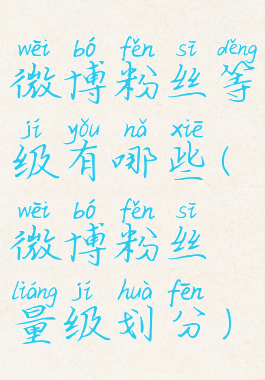 wēi bó fěn sī děng
微博粉丝等
jí yǒu nǎ xiē
级有哪些(
wēi bó fěn sī
微博粉丝
liáng jí huà fēn
量级划分)